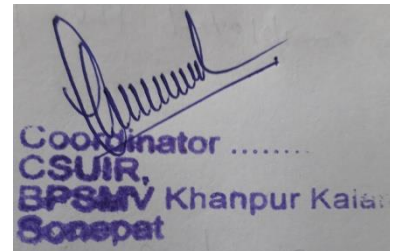 Coordinator ........
CSUIR,
BPSMV Khanpur Kalan
Sonepat